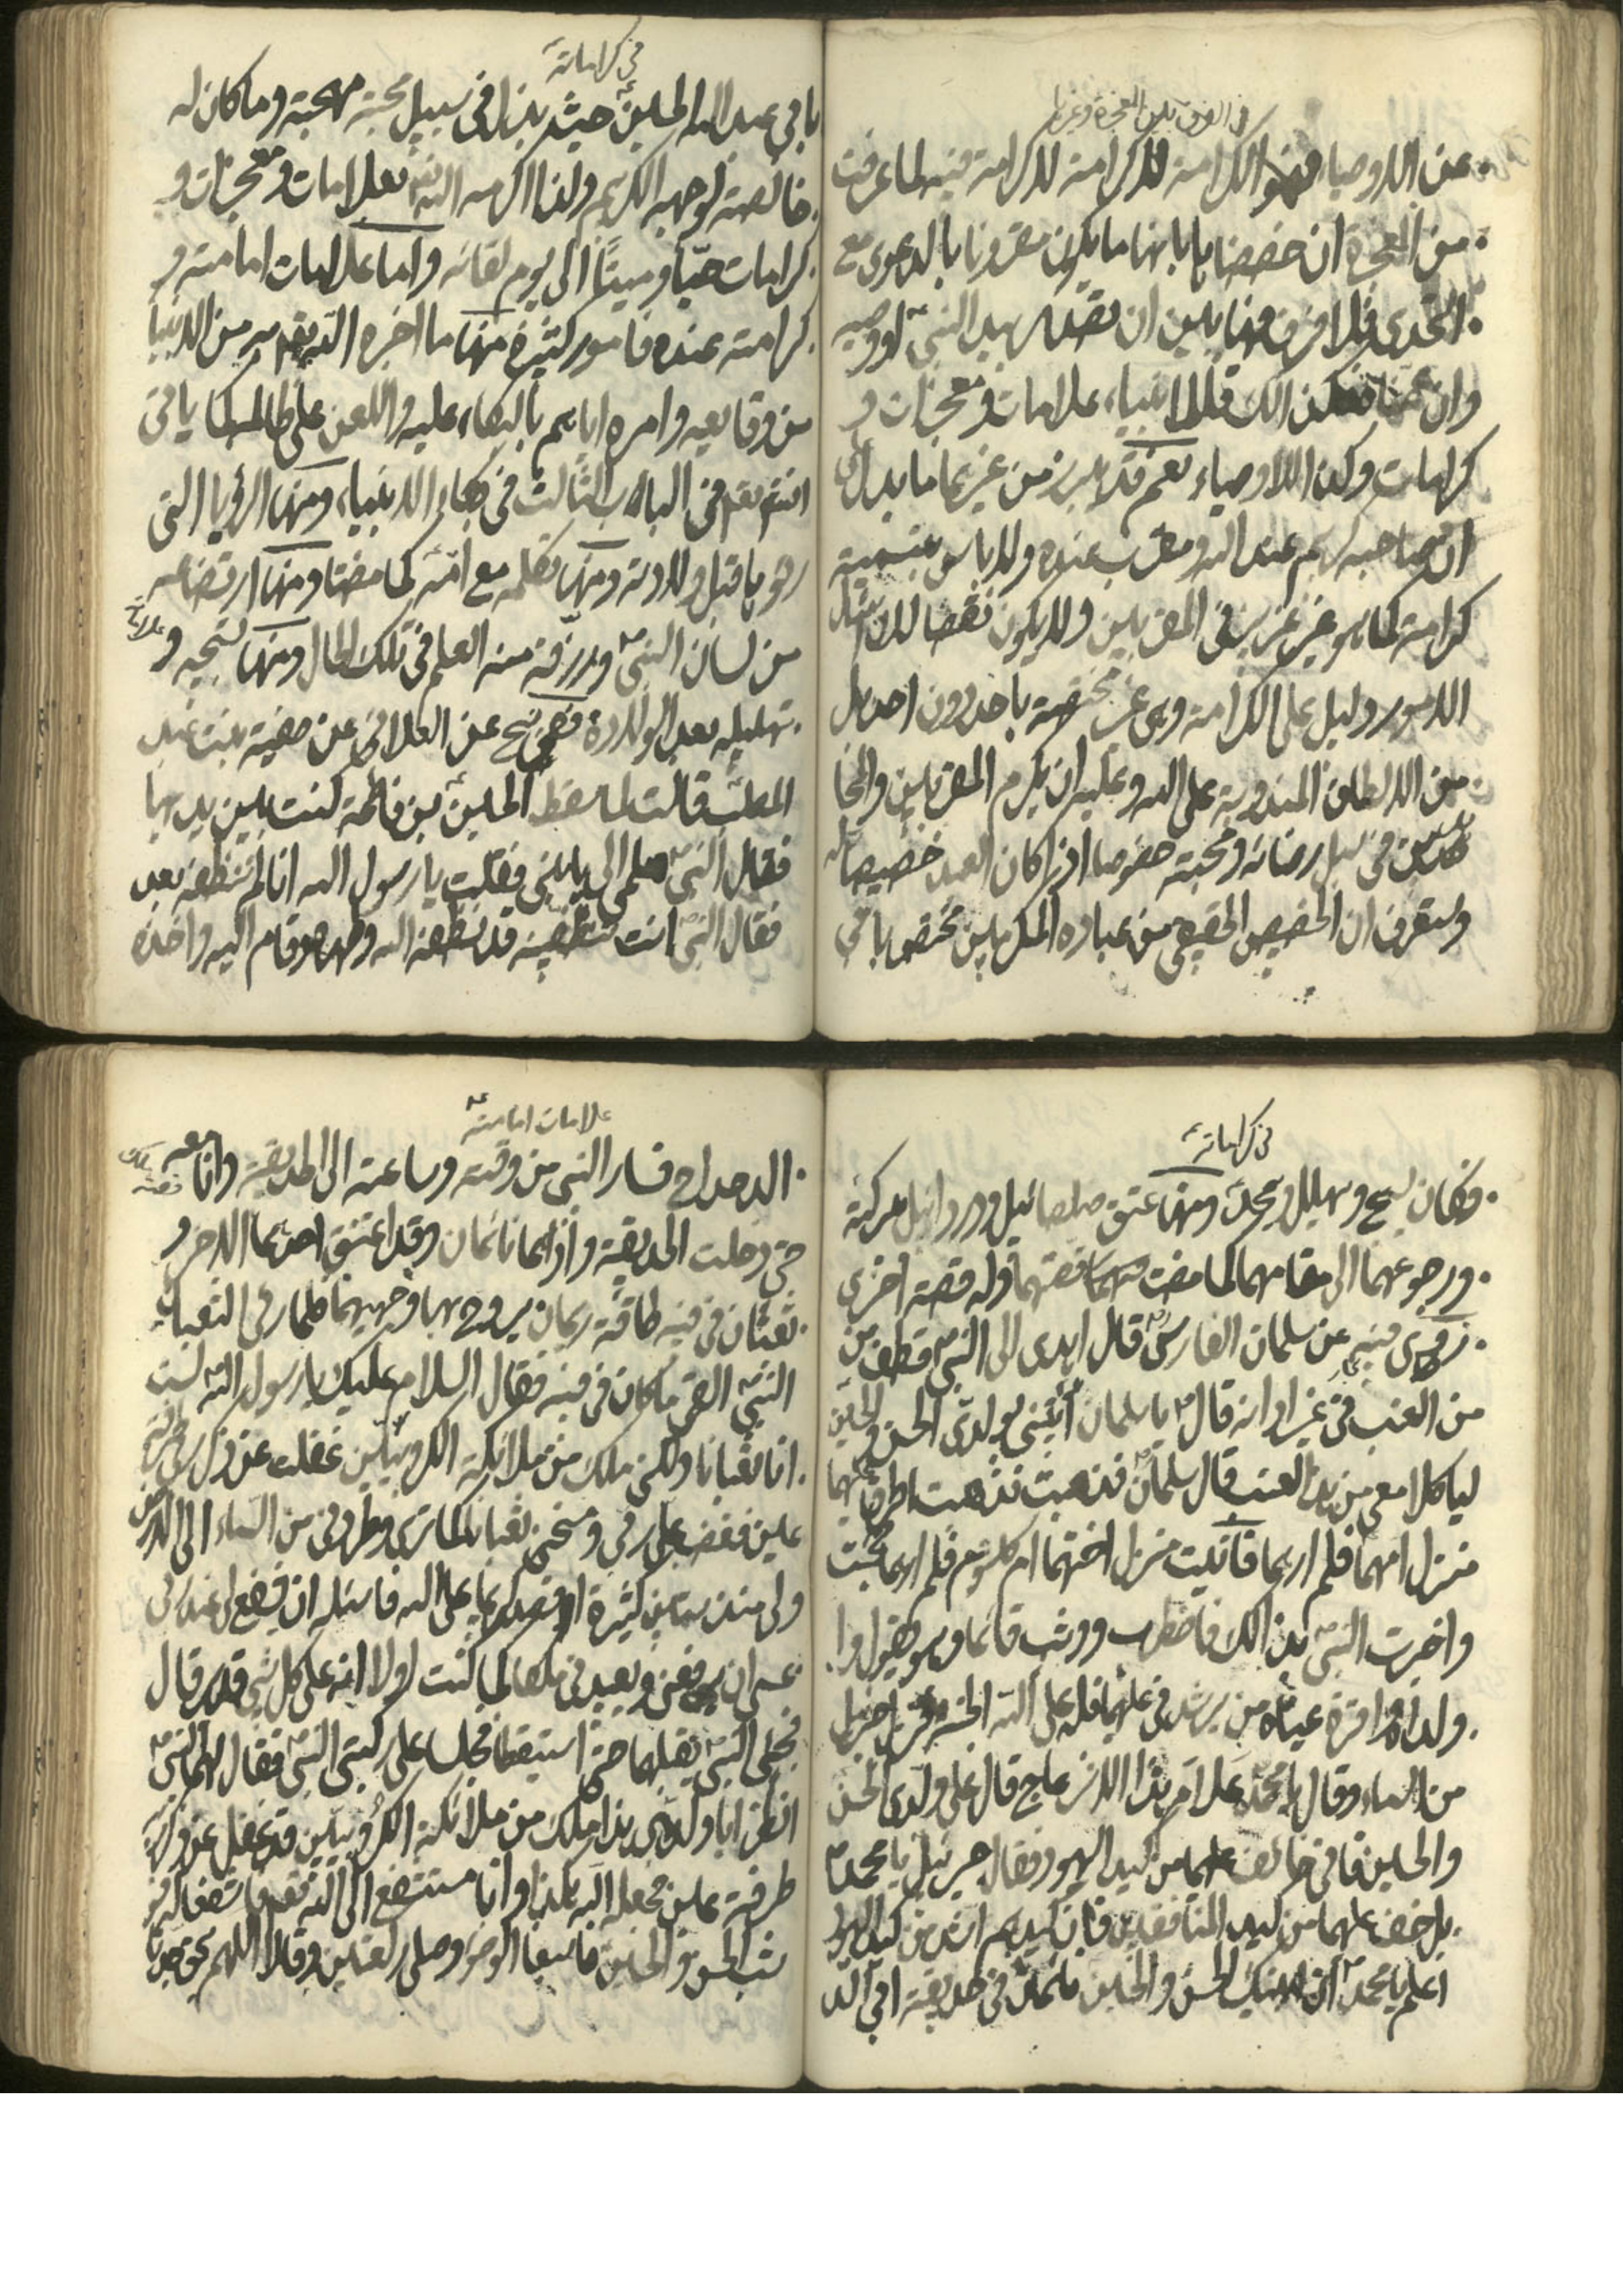 في الفرق بين المعجزة وغيرها
عن الاوصياء فهو الكرامة للكرامة فيه لما عرفت
من المعجزة ان خصصنا بابها ما يكون مقرونا بالدعوى مع
التحدي فلا فرق فيها بين ان تصدر بيد النبي او وصيه
وان فكذلك فللانبياء علامات ومعجزات و
كرامات وكذا الاوصياء نعم قد يبرز من غيرهما ما يدل على
ان صاحبه كريم عند الله ومقرب عنده ولا باس بتسمية
كرامة كما هو غير عزيز في المقربين ولا يكون نقضا لذلك
الامور دليل على الكرامة وهي غير مختصة باحد دون احد بل
من الالطاف المندوبة على الله وعليه ان يكرم المقربين والمجا
هدين في سبيل رضائه ومحبته خصوصا اذا كان العبد خصيصا له
وستعرف ان الخصيص الحقيقي من عباده المكرمين مختص بابي
في كراماته
بابي عبد الله الحسين حيث بذل في سبيل محبته مهجته وما كان له
خالصة لوجهه الكريم ولذا اكرمه الله بعلامات ومعجزات و
كرامات حيا وميتا الى يوم لقائه واما علامات امامته و
كرامته عنده فامور كثيرة منها ما اخبره الله من الدنيا
من وقايعه وامره اياهم بالبكاء عليه واللعن على ظالميه كما ياتي
انشاء في الباب الثالث في بكاء الانبياء ومنها الرؤيا التي
رجوها قبل ولادته ومنها تكلمه مع امه كما مضتا ومنها ارتضاعه
من لسان النبي ورزقه منه العلم في تلك الحال ومنها تسبيحه و
تهليله بعد الولادة ففي عن العلا في عن صفية بنت عبد
المطلب قالت لما سقط الحسين من فاطمة كنت بين يديها
فقال النبي هلمي الي يا بني فقلت يا رسول الله انا لم ننظفه بعد
فقال النبي انت تنظفينه قد نظفه الله وطهره وقام اليه واخذه
في كراماته
فكان يسبح ويهلل ويمجد ومنها عتق صلصائيل ودردائيل ببركته
ورجوعهما الى مقامهما كما مضت قصتهما وله قصة اخرى
روى فيه عن سلمان الفارسي قال اهدى الى النبي قطف من
من العنب في غير اوانه قال يا سلمان ائتني بولدي الحسن والحسين
لياكلا معي من هذا العنب قال سلمان فذهبت اطرق
منزل امهما فلم ارهما فاتيت منزل اختهما ام كلثوم فلم ارهما فجئت
واخبرت النبي بذلك فاضطرب ووثب قائما وهو يقول وا
ولداه وا قرة عيناه من يرشدني عليهما فله على الله الجنة فنزل جبرئيل
من السماء وقال يا محمد علام هذا الانزعاج قال على ولدي الحسن
والحسين فاني خائف عليهما من كيد اليهود فقال جبرئيل يا محمد
بل خف عليهما من كيد المنافقين فان كيدهم اشد من كيد اليهود
اعلم يا محمد ان ابنيك الحسن والحسين نائمان في حديقة ابي الد
علامات امامته
الدحداح فسار النبي من وقته وساعته الى الحديقة وانا معه
حتى دخلت الحديقة واذا هما نائمان وقد اعتنق احدهما الاخر و
ثعبان في فيه طاقة ريحان يروح بها وجهيهما فلما راى الثعبان
النبي القى ما كان في فيه فقال السلام عليك يا رسول الله لست
انا ثعبانا ولكني ملك من ملائكة الكروبيين غفلت عن ذكر ربي طرفة
عين فغضب علي ربي ومسخني ثعبانا كما ترى وطردني من السماء الى الارض
ولي منذ سنين كثيرة اقصد كريما على الله فاسئله ان يشفع لي عند ربي
عسى ان يرحمني ويعيدني ملكا كما كنت اولا انه على كل شيء قدير قال
فجثى النبي يقبلهما حتى استيقظا فجلسا على ركبتي النبي فقال لهما النبي
انظرا يا ولدي هذا ملك من ملائكة الكروبيين قد غفل عن ذكر ربه
طرفة عين فجعله الله هكذا وانا مستشفع الى الله تعالى بكما فاشفعا له فو
ثب الحسن والحسين فاسبغا الوضوء وصليا ركعتين وقالا اللهم بحق جدنا